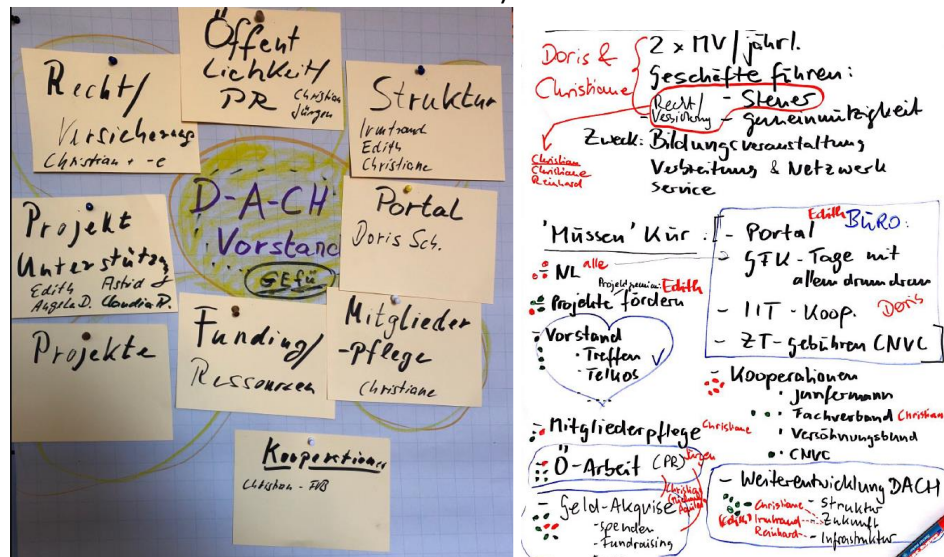 Öffent
lichkeit/
PR
Christian
Jürgen
Recht/
Versicherung
Christian + -e
Struktur
Irmtraud
Edith
Christiane
D-A-CH
Vorstand
GEfü
Portal
Doris Sch.
Projekt
Unterstützg
Edith Astrid
Angela D. Claudia R.
Projekte
Funding/
Ressourcen
Mitglieder
-pflege
Christiane
Kooperationen
Christian - FVB
Doris &
Christiane
2 x MV / jährl.
Geschäfte führen:
- Steuer
Recht/
- Versicherung
- gemeinnützigkeit
Christian
Christiane
Reinhard
Zweck: Bildungsveranstaltung
Verbreitung & Netzwerk
Service
'Müssen' Kür:
- NL alle
Projektpremium: Edith
- Projekte fördern
- Vorstand
· Treffen
· Telkos
- Mitgliederpflege Christiane
- Ö-Arbeit (PR) Jürgen
Christian
- Geld-Akquise
- Spenden
- Fundraising
- Portal Edith BÜRO:
- GFK-Tage mit
allem drum dran
- IIT-Koop. Doris
- ZT-gebühren CNVC
- Kooperationen
· Junfermann
· Fachverband Christian
· Versöhnungsbund
· CNVC
- Weiterentwicklung DACH
Christiane - Struktur
Edith? Irmtraud - Zukunft
Reinhard - Infrastruktur